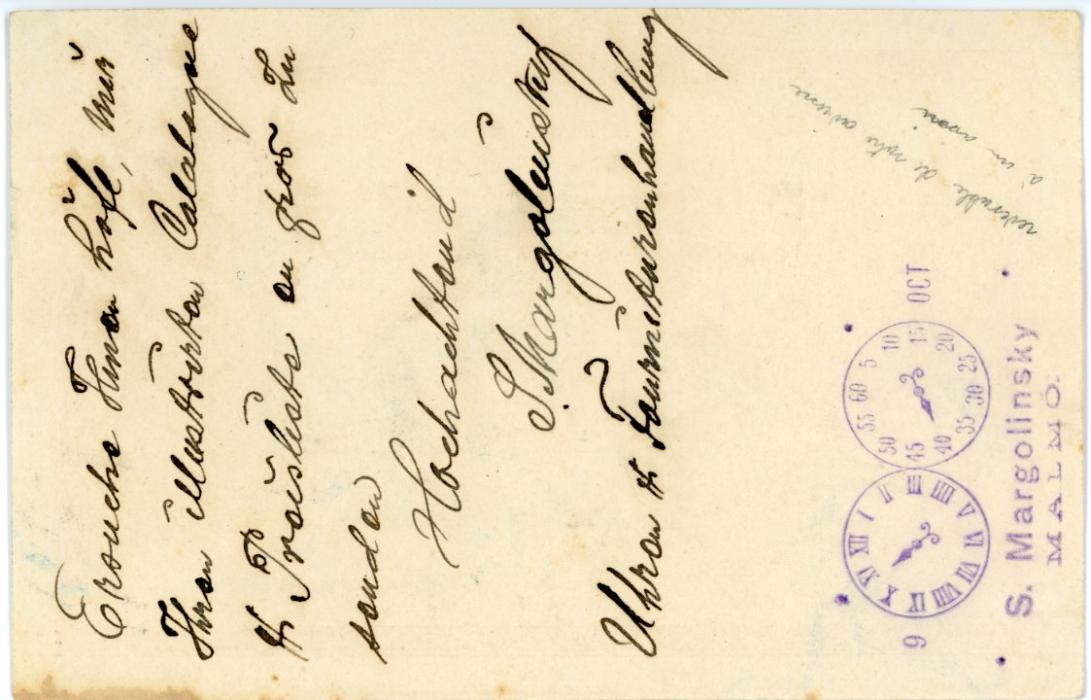 Ersuche Ihnen höfl, mir
Ihren illustrirten Catalogue
& Preisliste en gros zu
senden
Hochachtend
S. Margolinsky
Uhren & Fourniturenhandlung
reversible de notre
à un
9
OCT
I II III IIII V VI VII VIII IX X XI XII
5 10 15 20 25 30 35 40 45 50 55 60
S. Margolinsky
MALMÖ.